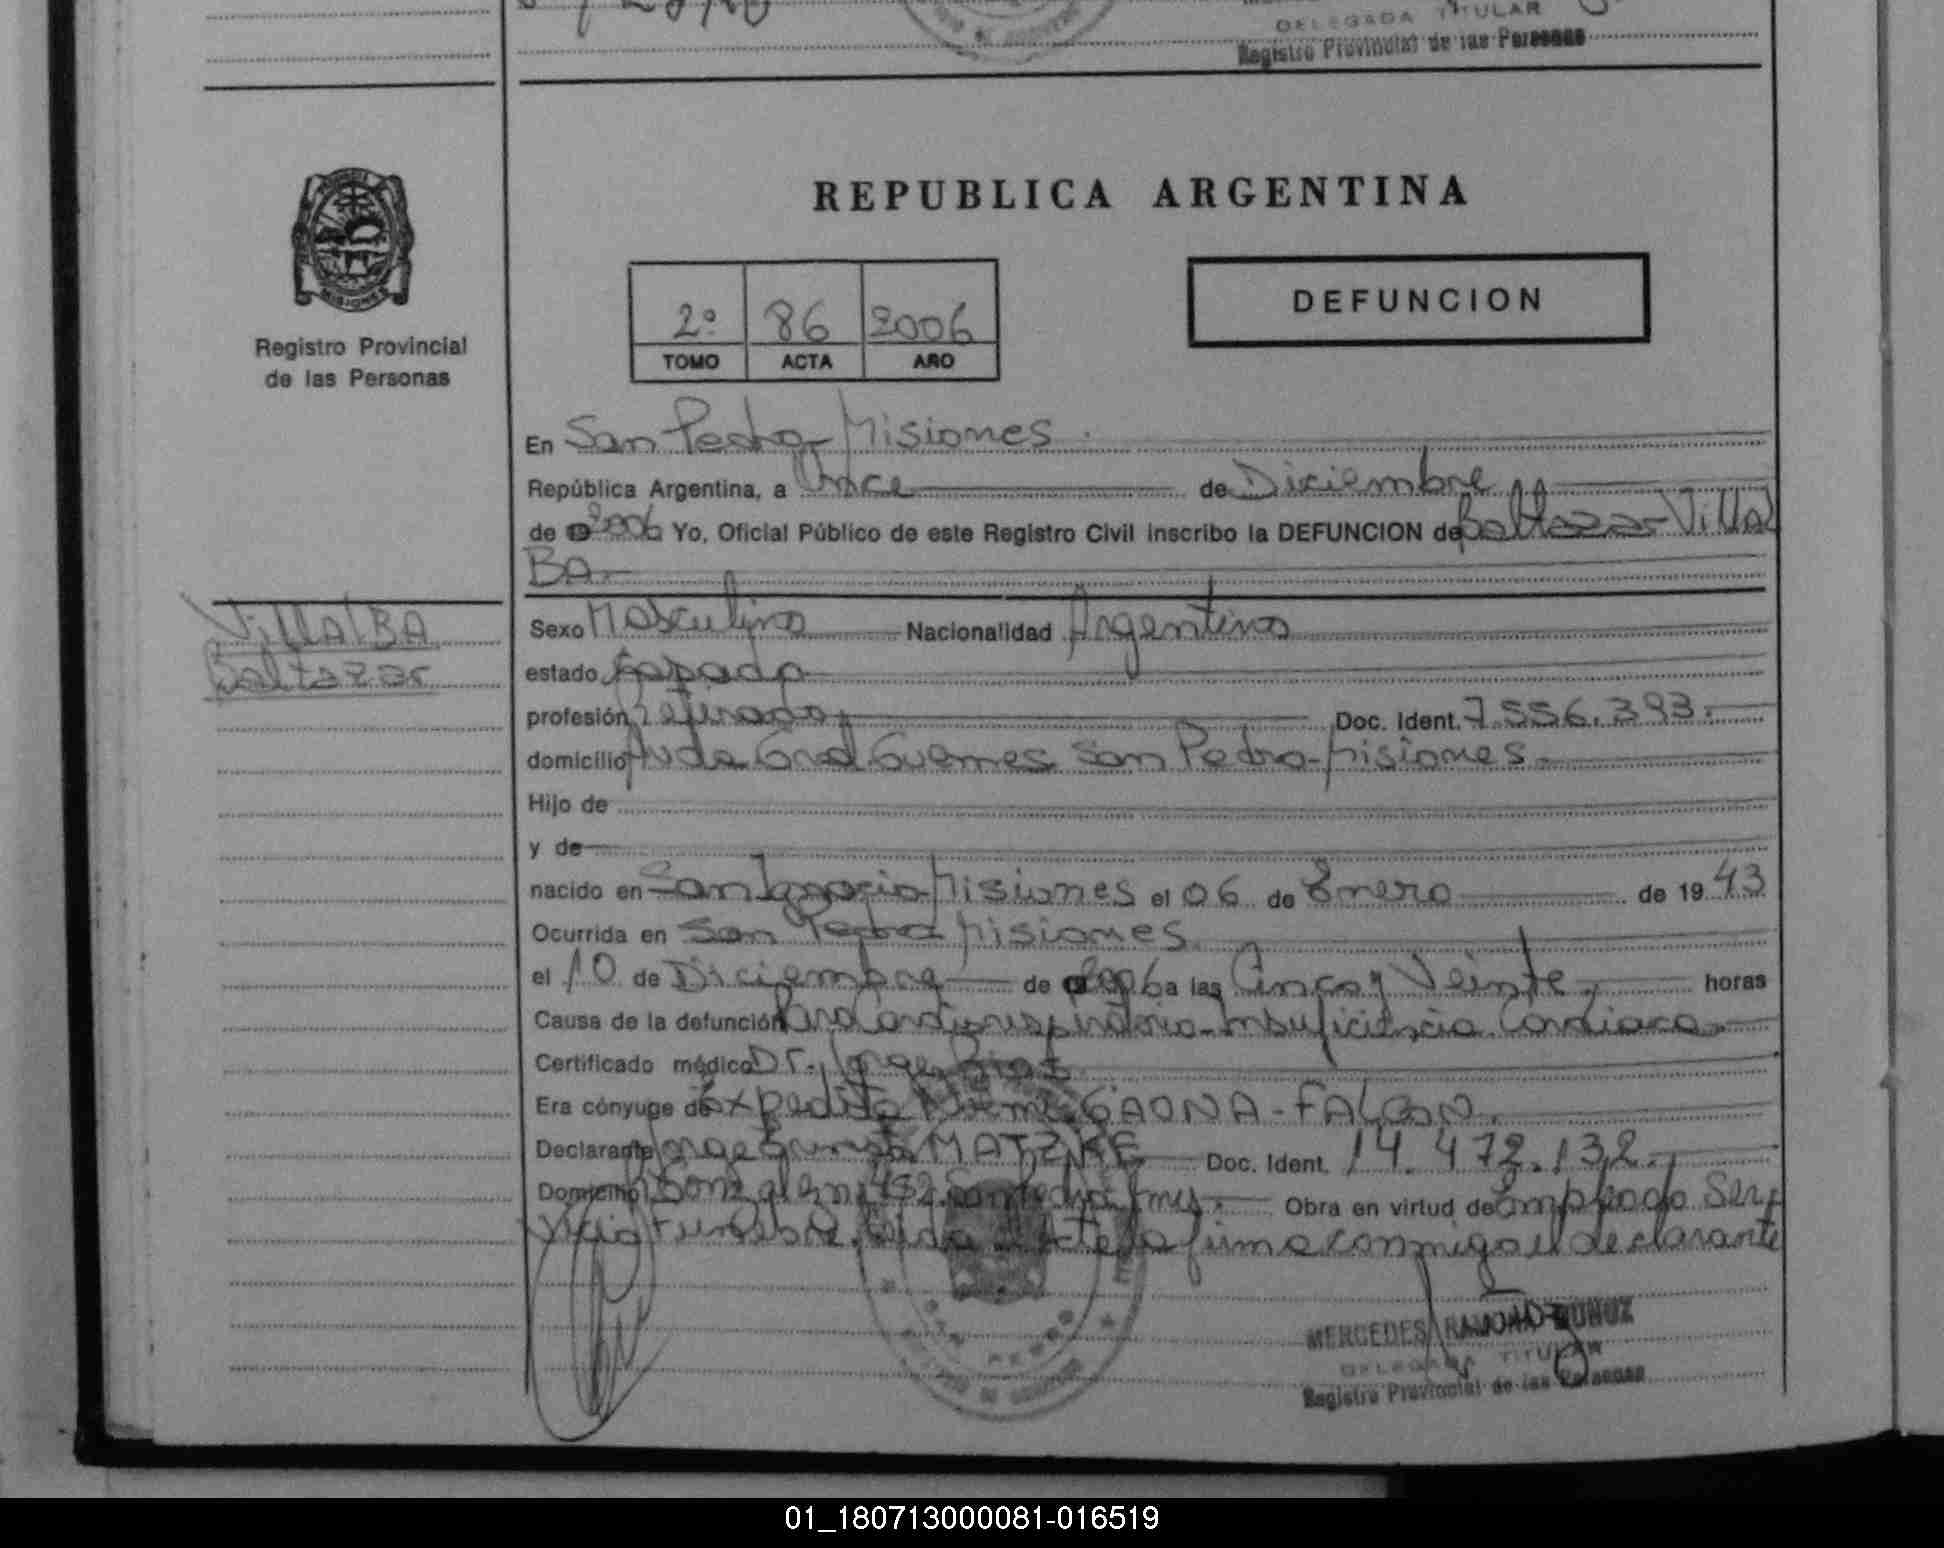 DELEGADA TITULAR
Registro Provincial de las Personas
REPUBLICA ARGENTINA
DEFUNCION
2º 86 2006
TOMO ACTA AÑO
Registro Provincial
de las Personas
En San Pedro- Misiones
República Argentina, a Once de Diciembre
de 2006 Yo, Oficial Público de este Registro Civil inscribo la DEFUNCION de Baltazar Villal
BA.
VillAlBA
Baltazar
Sexo Masculino Nacionalidad Argentino
estado Casado
profesión Retirado Doc. Ident. 7.556.393.
domicilio Avda Gral Guemes San Pedro-Misiones.
Hijo de
y de
nacido en San Ignacio-Misiones el 06 de Enero de 19 43
Ocurrida en San Pedro Misiones
el 10 de Diciembre de 2006 a las Cinco y Veinte, horas
Causa de la defunción Paro Cardiorespiratorio-Insuficiencia Cardiaca.
Certificado médico Dr. Jorge
Era cónyuge de Expedita GAONA-FALCON.
Declarante Jorge MATZKE Doc. Ident. 14.472.132.
Domicilio 452 San Pedro Mnes. Obra en virtud de Empleado Ser
vicio Funebre. Leida el Acta la firma conmigo el declarante
MERCEDES RAMONA MUÑOZ
DELEGADA TITULAR
Registro Provincial de las Personas
01_180713000081-016519